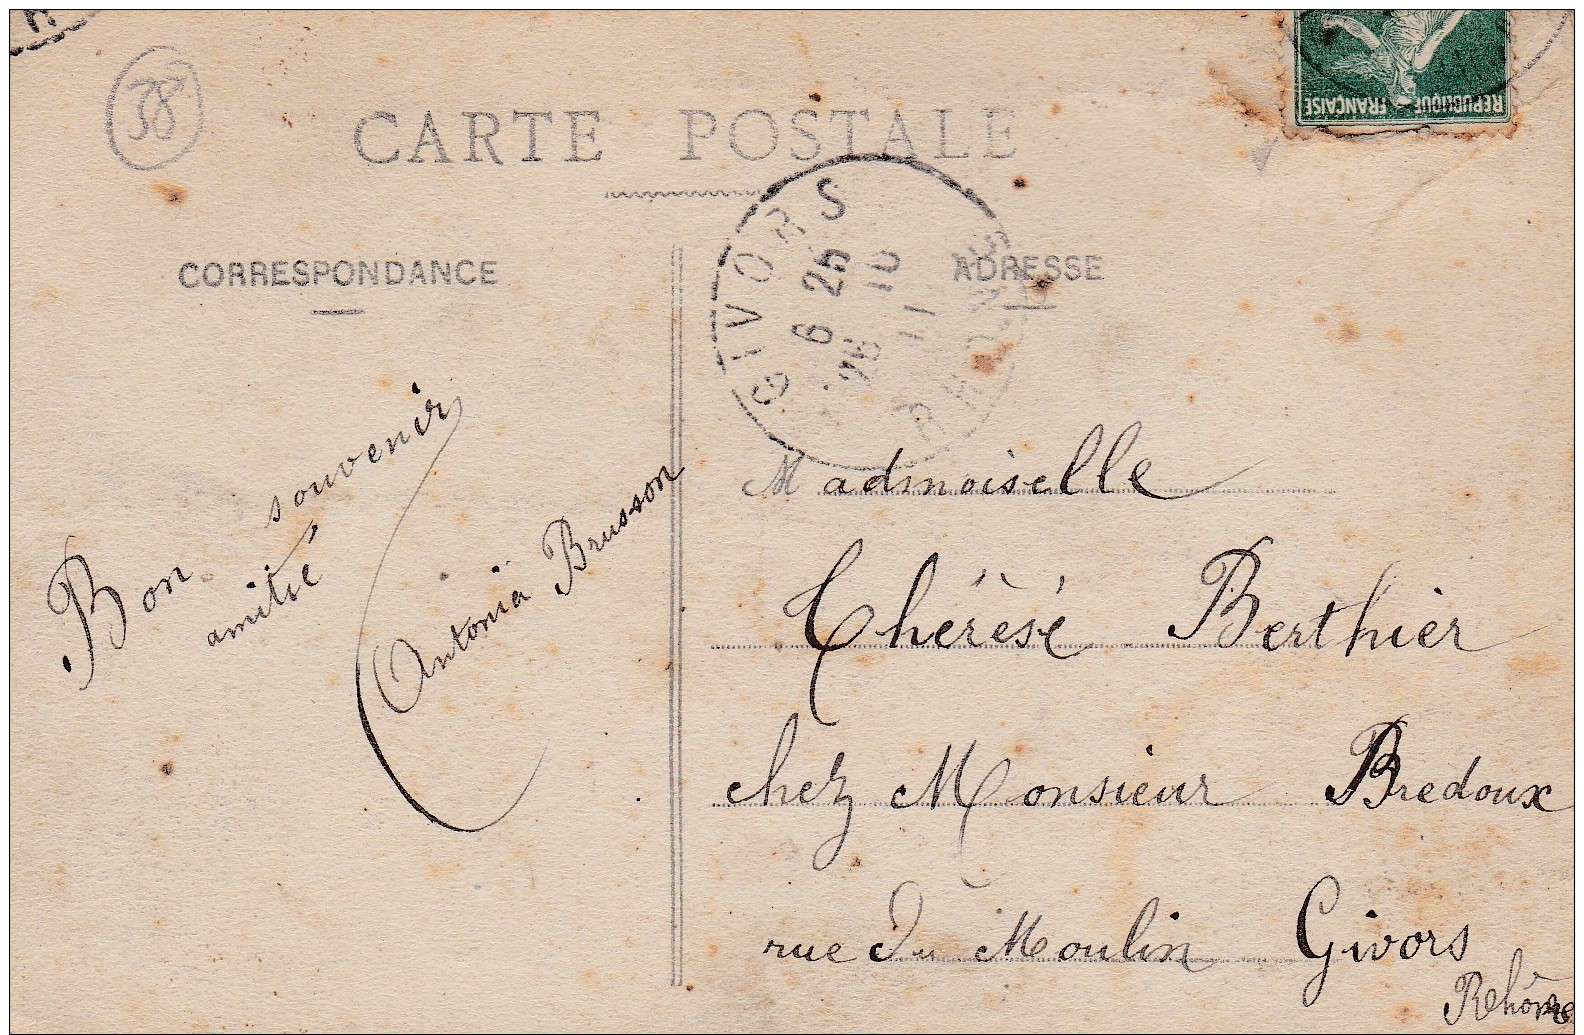 38
CARTE POSTALE
RÉPUBLIQUE FRANÇAISE
GIVORS
RHONE
6 25
26 10
11
CORRESPONDANCE
ADRESSE
Bon souvenir
amitié
Antonia Brusson
Madmoiselle
Thérèsé Berthier
chez Monsieur Bredoux
rue du Moulin Givors
Rhône